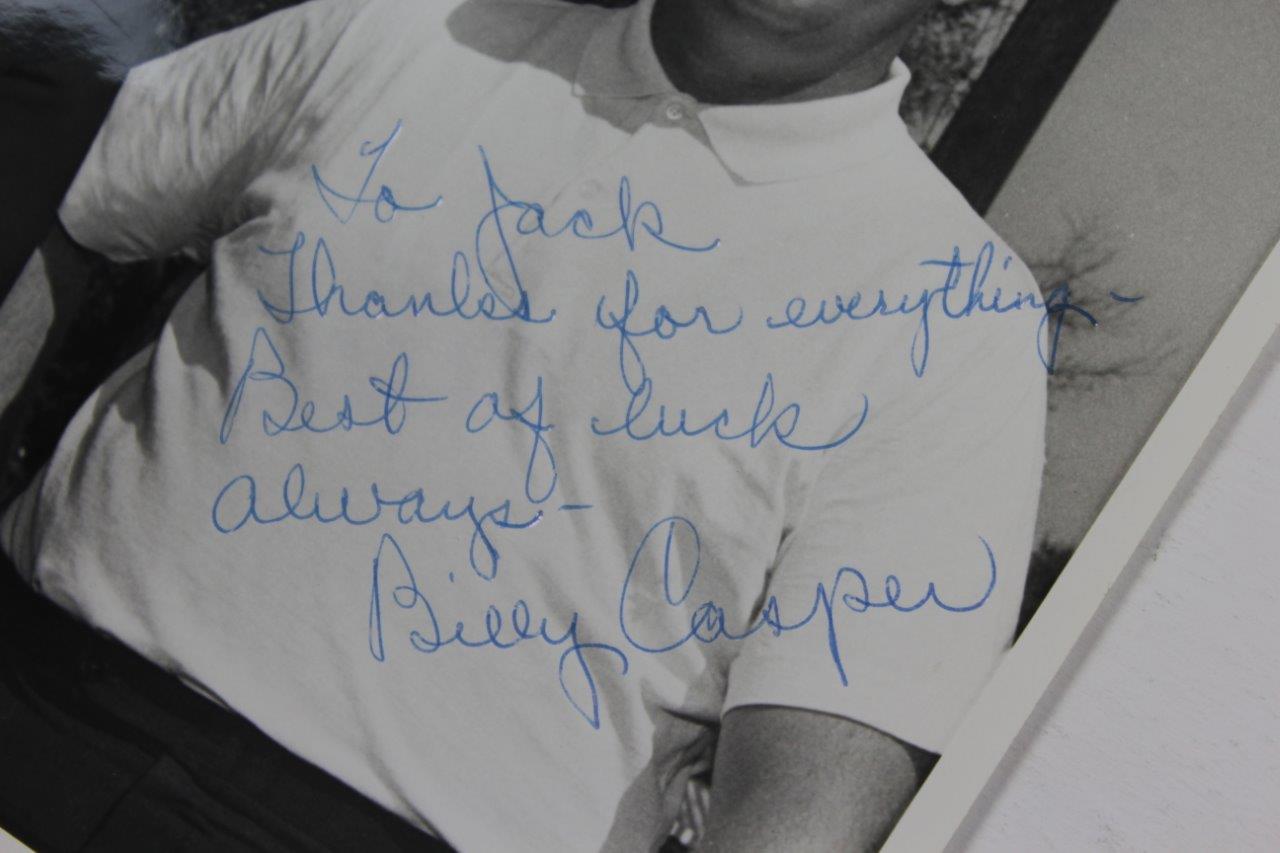 To Jack
Thanks for everything-
Best of luck
always-
Billy Casper